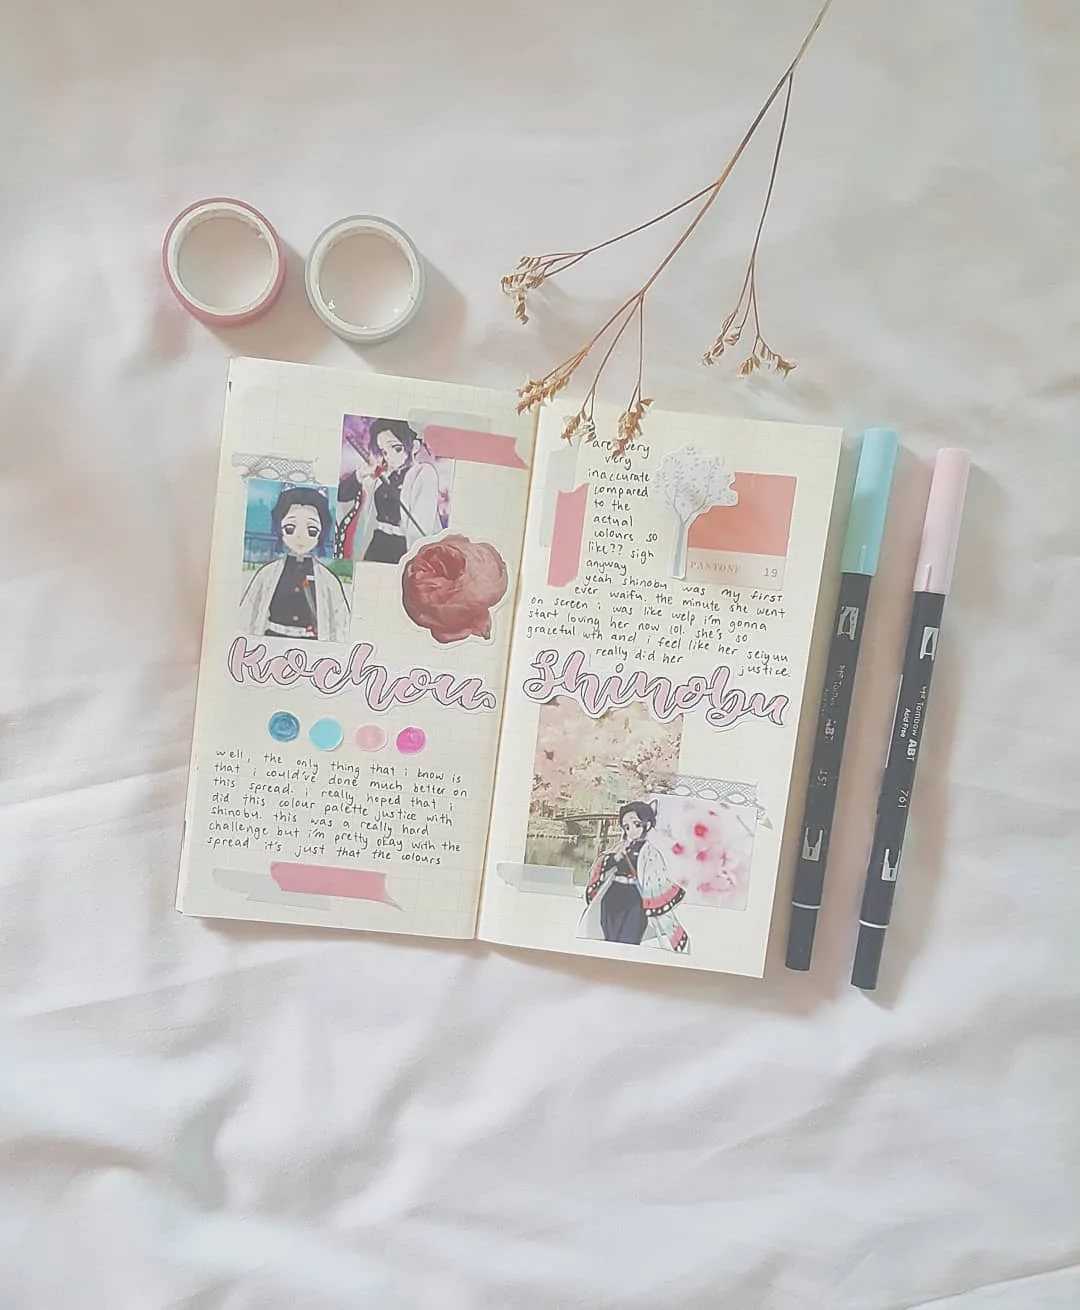 Kochou
well, the only thing that i know is
that i could've done much better on
this spread. i really hoped that i
did this colour palette justice with
shinobu. this was a really hard
challenge but i'm pretty okay with the
spread it's just that the colours
are very
very
inaccurate
compared
to the
actual
colours so
like?? sigh
anyway
yeah shinobu was my first
ever waifu. the minute she went
on screen i was like welp i'm gonna
start loving her now lol. she's so
graceful wth and i feel like her seiyuu
really did her justice.
PANTONE
19
Shinobu
Tombow ABT
151
Tombow ABT
Acid Free
761